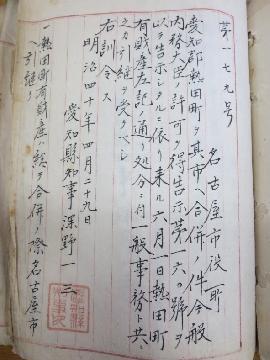 第一七九号
名古屋市役所
愛知郡熱田町ヲ其市ヘ合併ノ件今般
内務大臣ノ許可ヲ得告示第一六〇号ヲ
以テ告示シタルニ依リ来ル六月一日熱田町
有財産左記ノ通リ処分シ同一般事務ト共
之カ引継ヲ受クベシ
右訓令ス
明治四十年四月二十九日
愛知縣知事深野一三
一熱田町有財産ハ総テ合併ノ際名古屋市
ヘ引継